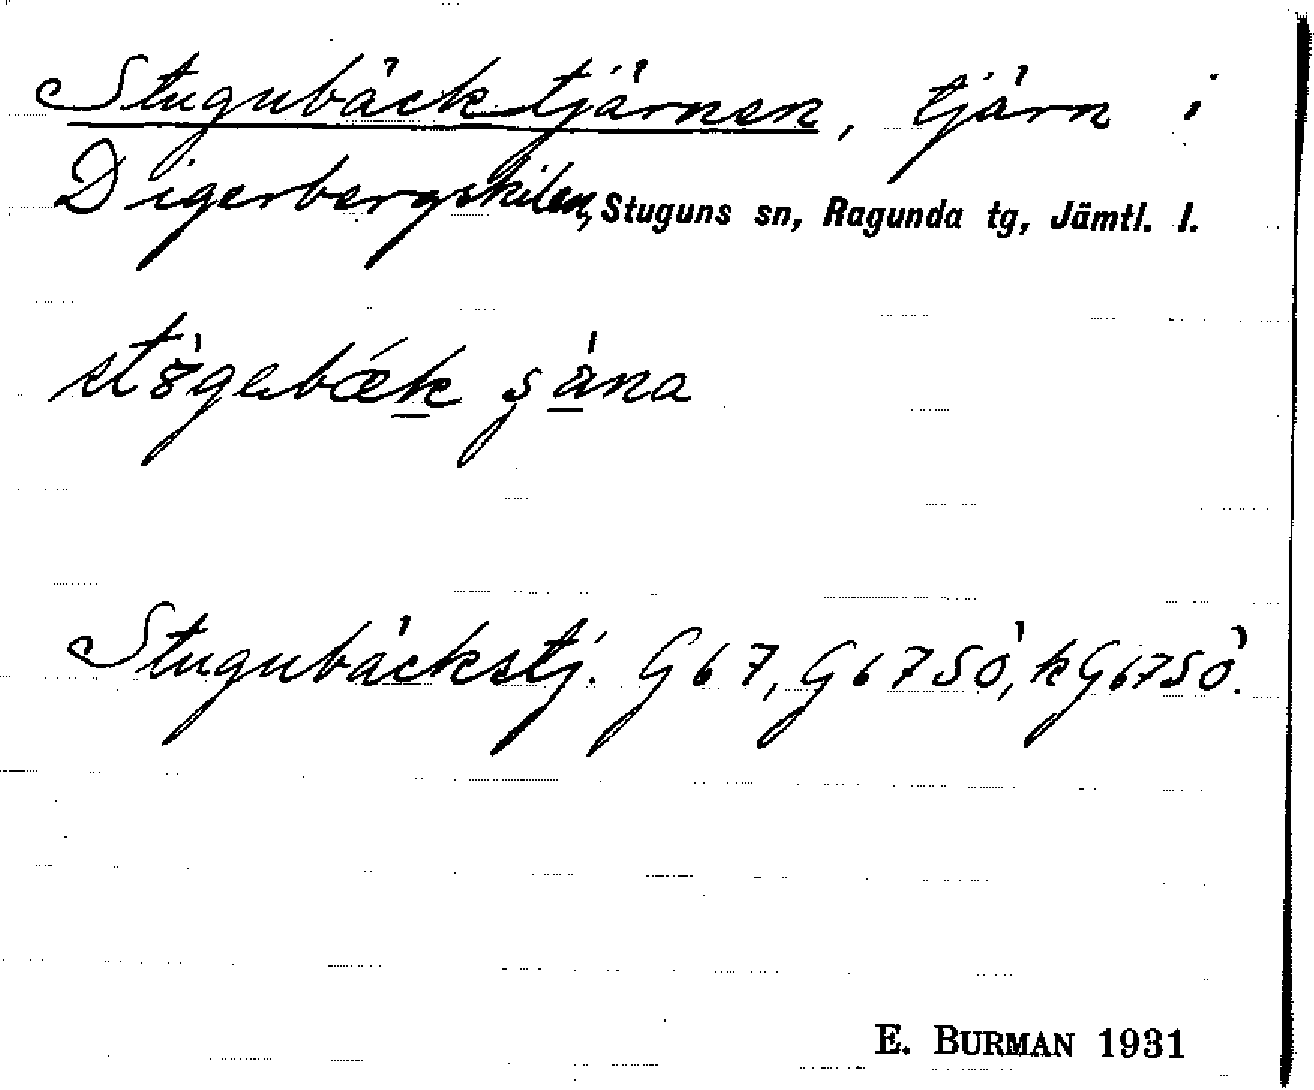 Stugubäcktjärnen, tjärn i
Digerbergskilen, Stuguns sn, Ragunda tg, Jämtl. l.
Stugubäckstj. G67, G67SÖ, kG67SÖ.
E. BURMAN 1931